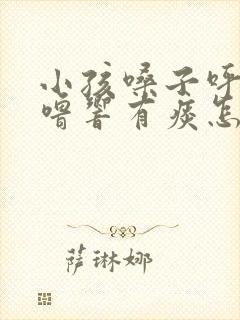 小孩嗓子呼
噜响有痰怎
萨琳娜